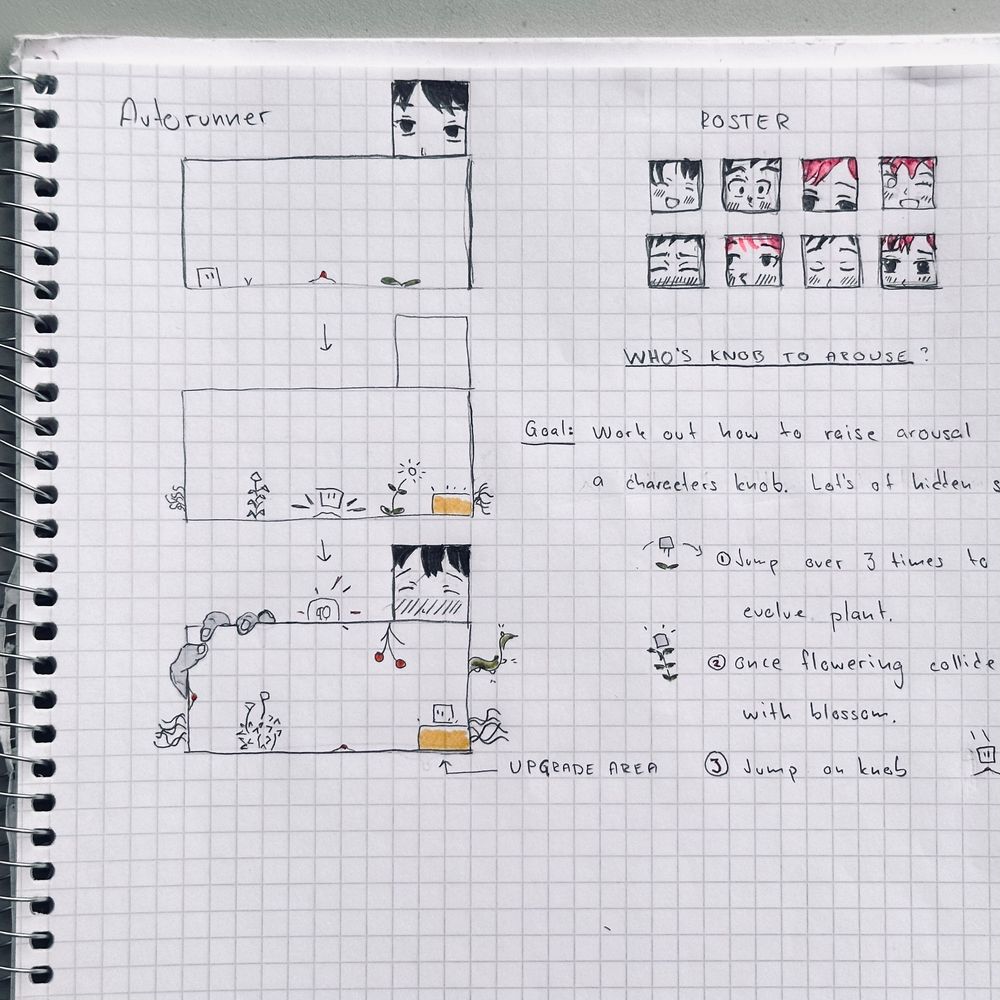 Autorunner
ROSTER
WHO'S KNOB TO AROUSE?
Goal: Work out how to raise arousal
a characters knob. Lot's of hidden s
① Jump over 3 times to
evolve plant.
② once flowering collide
with blossom.
③ Jump on knob
UPGRADE AREA